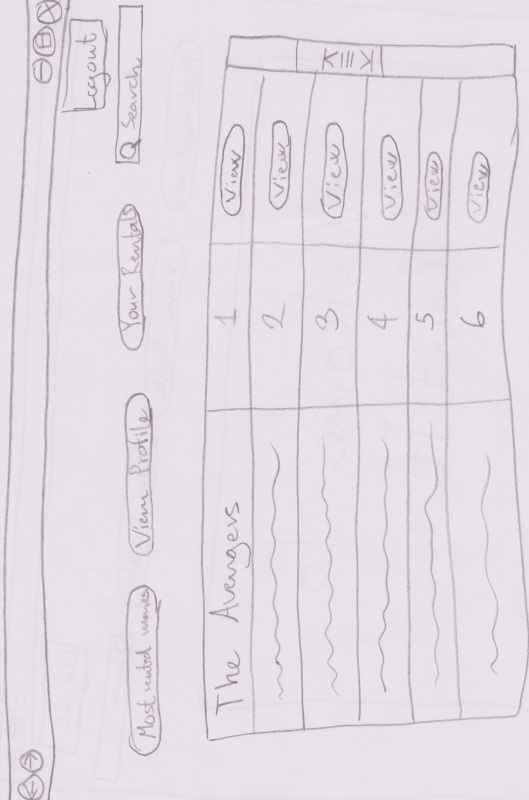 Logout
Most rented movies
View Profile
Your Rentals
Search
The Avengers 1 View
2 View
3 View
4 View
5 View
6 View